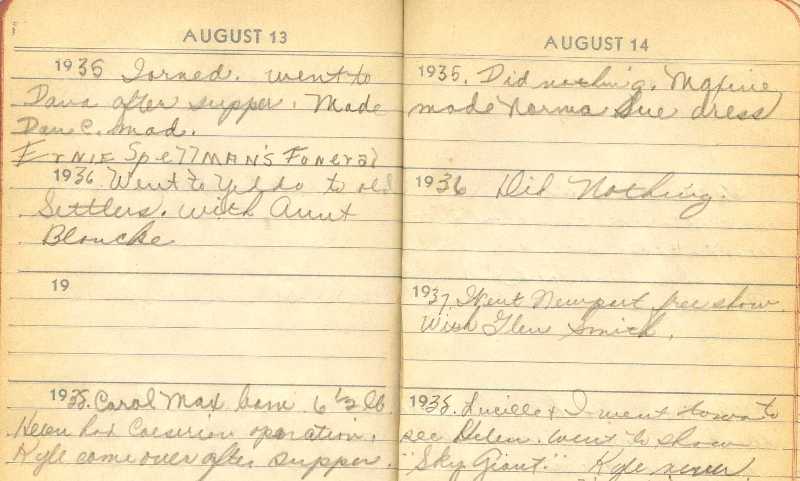 AUGUST 13
1935 Ioned. went to
Dana after supper. Made
Dan C. mad.
ERNIE SpellMAN'S FoNeral
1936 Went to Yeddo to old
Settlers. with Aunt
Blanche
19
1938. Carol Max born 6 1/2 lb
Helen had Caeserion operation.
Kyle come over after supper.
AUGUST 14
1935. Did nothing. Maxine
made Norma Sue dress
1936 Did Nothing.
1937 Went Newport free show.
With Glen Smith.
1938. Lucille & I went to
see Helen. Went to show
"Sky Giant." Kyle